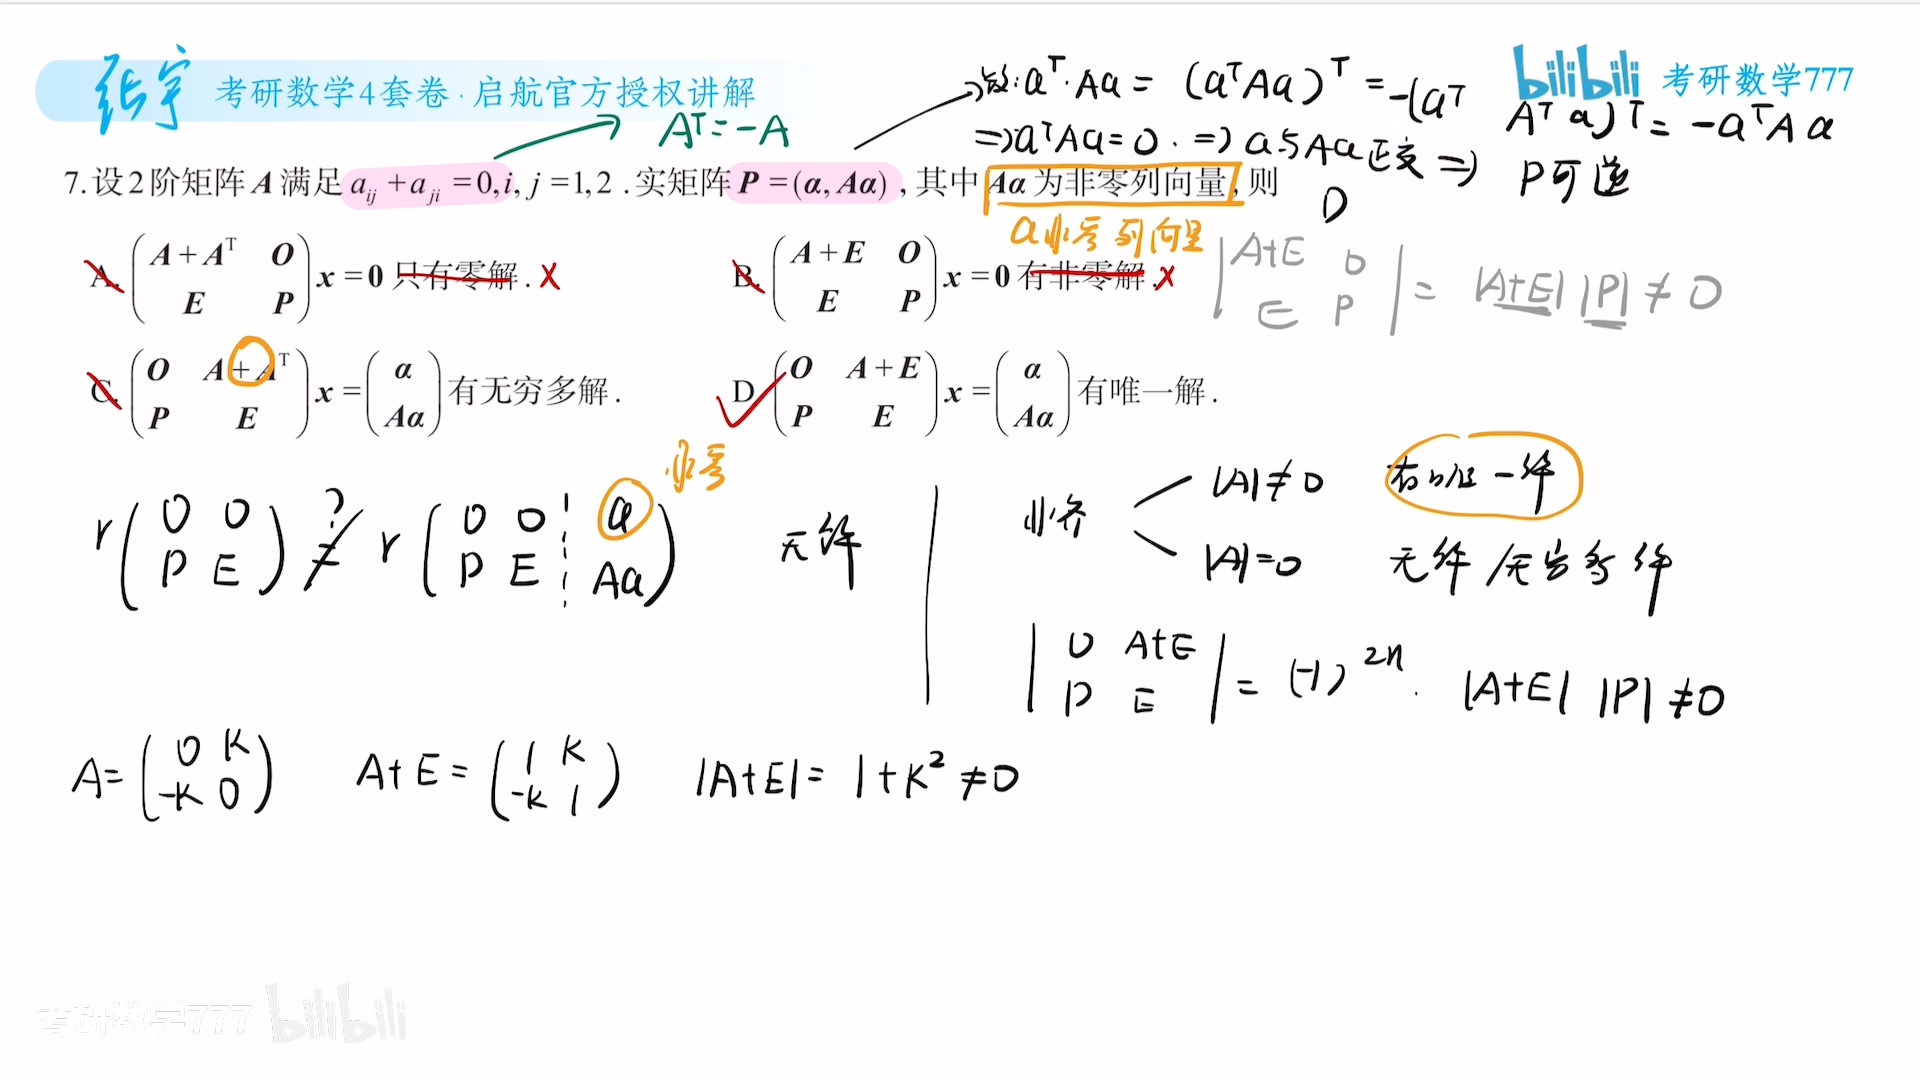 张宇 考研数学4套卷·启航官方授权讲解
bilibili 考研数学777
A^T=-A
故:α^T·Aα=(α^TAα)^T=-(α^T A^Tα)^T=-α^TAα
⇒α^TAα=0.⇒α与Aα正交⇒P可逆
7.设2阶矩阵A满足a_{ij}+a_{ji}=0,i,j=1,2.实矩阵P=(α,Aα),其中Aα为非零列向量,则
D
α非零列向量
A. (A+A^T O; E P) x=0 只有零解. X
B. (A+E O; E P) x=0 有非零解. X
|A+E O; E P| = |A+E| |P| ≠ 0
C. (O A+A^T; P E) x=(α; Aα) 有无穷多解.
D. (O A+E; P E) x=(α; Aα) 有唯一解.
非零
r(O O; P E) ≠ ? r(O O α; P E Aα) 无解
非齐
|A|≠0 有唯一解
|A|=0 无解/无穷多解
|O A+E; P E| = (-1)^{2n}·|A+E| |P| ≠ 0
A=(0 K; -K 0) A+E=(1 K; -K 1) |A+E|=1+K²≠0
考研数学777 bilibili